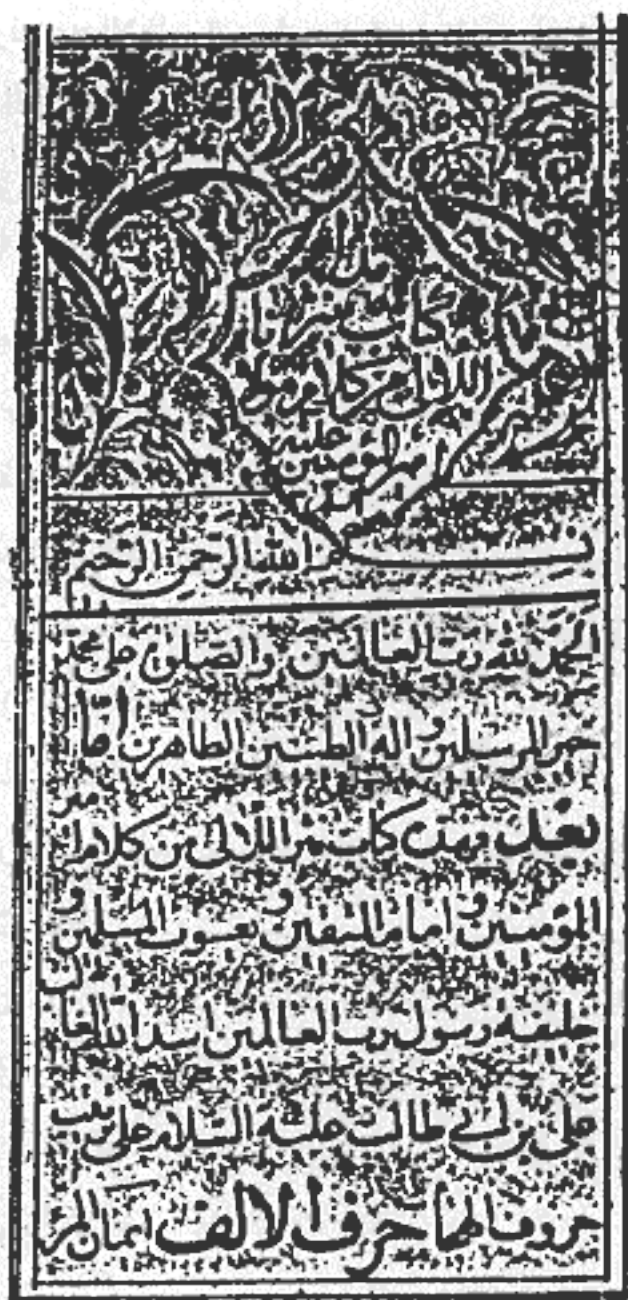 هذا
كتاب نثر
اللآلي من كلام مولانا
امير المؤمنين عليه
بسم الله الرحمن الرحيم
الحمد لله رب العالمين والصلوة على محمد
خير المرسلين واله الطيبين الطاهرين اما
بعد فهذا كتاب نثر اللآلي من كلام امير
المؤمنين و امام المتقين و يعسوب المسلمين و
خليفة رسول رب العالمين اسد الله الغالب
علي بن ابي طالب عليه السلام على ترتيب
حروف الهجا حرف الالف ايمان المرء